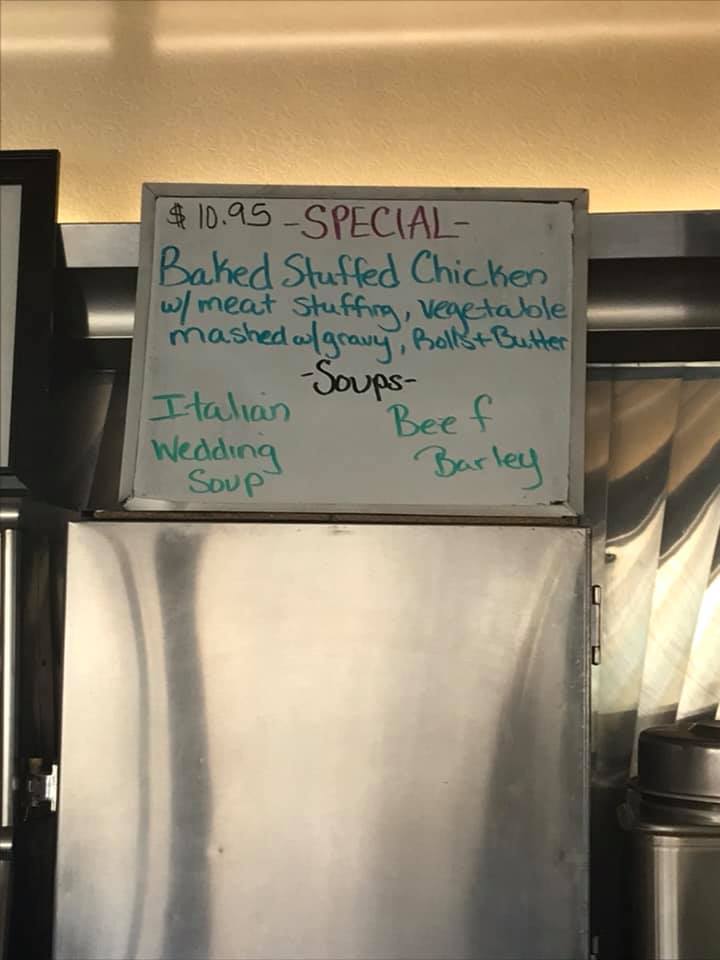 $ 10.95 -SPECIAL-
Baked Stuffed Chicken
w/ meat stuffing, vegetable
mashed w/gravy, Rolls + Butter
-Soups-
Italian
Wedding
Soup
Beef
Barley